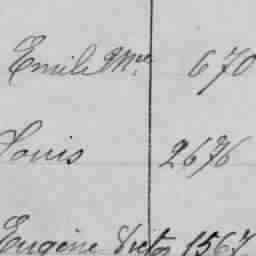 Emile Mce 670
Louis 2676
Eugène Victor 1567